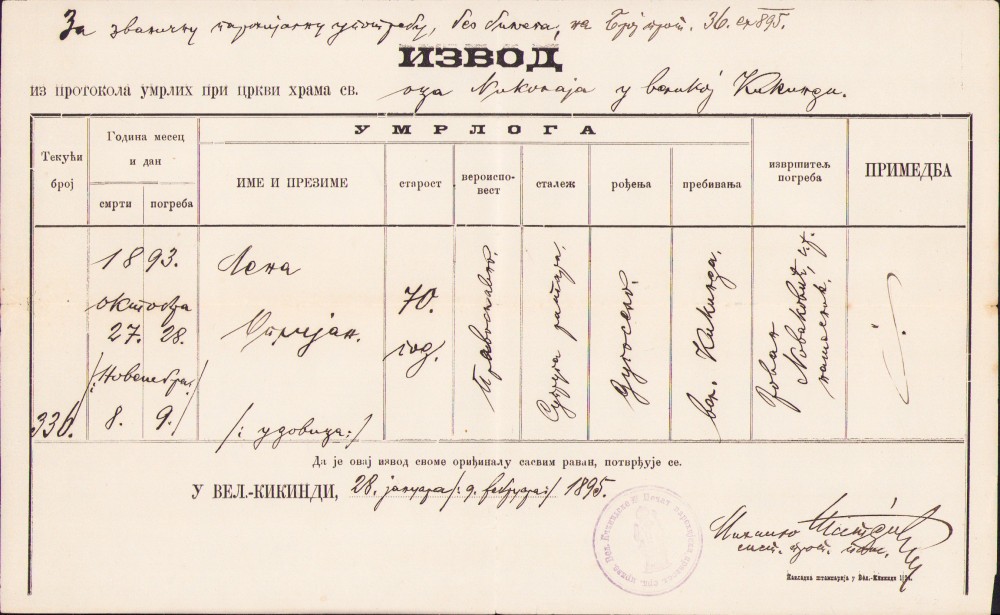 За званичну парохијалну употребу, без биљега, на Број прот. 36. ex 895.
ИЗВОД
из протокола умрлих при цркви храма св. оца Николаја у великој Кикинди.
УМРЛОГА
Текући број
Година месец и дан
смрти
погреба
ИМЕ И ПРЕЗИМЕ
старост
вероисповест
сталеж
рођења
пребивања
извршитељ погреба
ПРИМЕДБА
336.
1893.
октобра
27. 28.
/:Новембра.
8. 9./
Лена
/: удовица:/
70.
год.
Православно.
Супруга
вел. Кикинда.
Јован
Новаковић,
Да је овај извод своме ориђиналу сасвим раван, потврђује се.
У ВЕЛ.-КИКИНДИ, 28. јануара /: 9. фебруара:/ 1895.
Накладна штампарија у Вел.-Кикинди